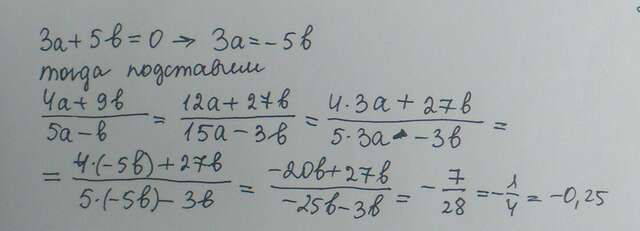 3а + 5в = 0 → 3а = -5в
тогда подставим
(4а + 9в)/(5а - в) = (12а + 27в)/(15а - 3в) = (4·3а + 27в)/(5·3а - 3в) =
= (4·(-5в) + 27в)/(5·(-5в) - 3в) = (-20в + 27в)/(-25в - 3в) = -7/28 = -1/4 = -0,25